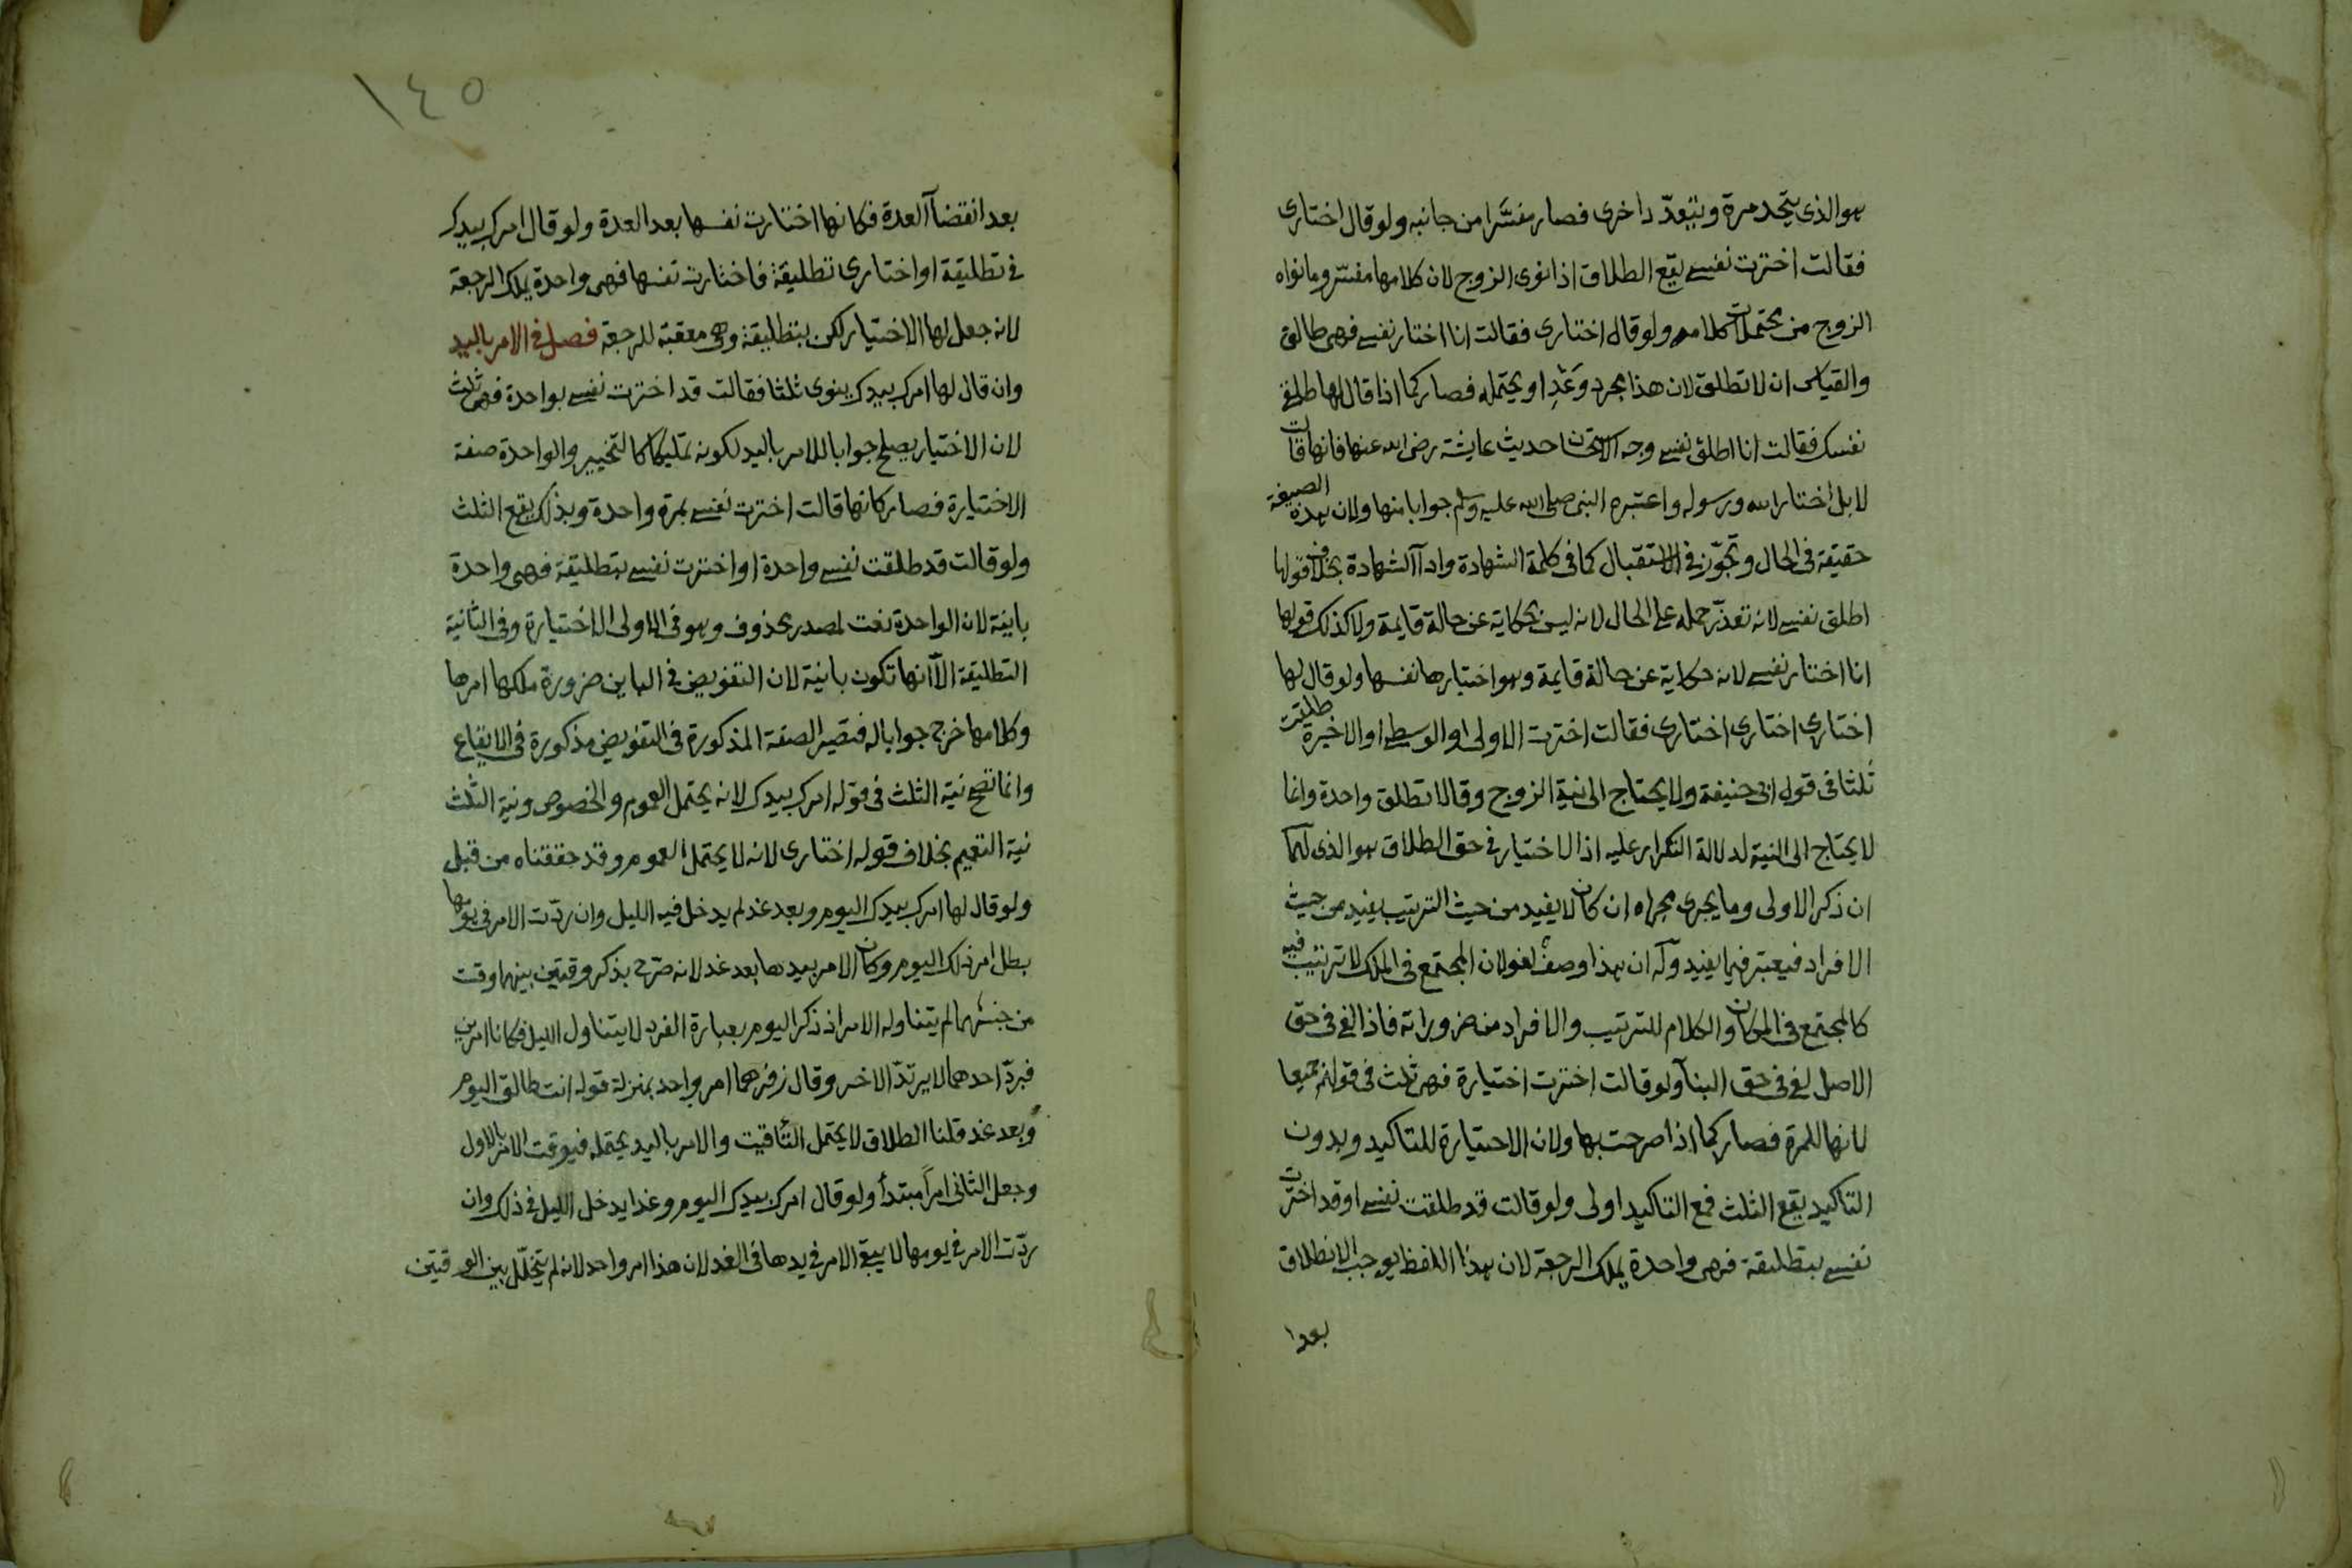 هو الذي يتحد مرة ويتعدد اخرى فصار مفسرا من جانبه ولو قال اختاري
فقالت اخترت نفسي يقع الطلاق اذا نوى الزوج لان كلامها مفسر وما نواه
الزوج من محتملات كلامه ولو قال اختاري فقالت انا اختار نفسي فهي طالق
والقياس ان لا تطلق لان هذا مجرد وَعْدٍ او يحتمله فصار كما اذا قال لها طلقي
نفسك فقالت انا اطلق نفسي وجه الاستحسان حديث عايشة رضي الله عنها فانها قالت
لا بل اختار الله ورسوله واعتبره النبي صلى الله عليه وسلم جوابا منها ولان هذه الصيغة
حقيقة في الحال وتجوّز في الاستقبال كما في كلمة الشهادة واداآ الشهادة بخلاف قولها
اطلق نفسي لانه تعذّر حمله على الحال لانه ليس بحكاية عن حالة قايمة ولا كذلك قولها
انا اختار نفسي لانه حكاية عن حالة قايمة وهو اختيارها نفسها ولو قال لها
اختاري اختاري اختاري فقالت اخترت الاولى او الوسطى او الاخيرة طلقت
ثلثا في قول ابي حنيفة ولا يحتاج الى نية الزوج وقالا تطلق واحدة وانما
لا يحتاج الى النية لدلالة التكرار عليه اذ الاختيار في حق الطلاق هو الذي لهما
ان ذكر الاولى وما يجري مجراه ان كان لا يفيد من حيث الترتيب يفيد من حيث
الافراد فيعتبر فيما يفيد وله ان هذا وصف لغو لان المجتمع في الملك لا ترتيب فيه
كالمجتمع في المكان والكلام للترتيب والافراد من ضروراته فاذا لغي في حق
الاصل لغي في حق البنآ ولو قالت اخترت اختيارة فهي ثلث في قولهم جميعا
لانها للمرة فصار كما اذا صرحت بها ولان الاختيارة للتاكيد وبدون
التاكيد يقع الثلث فمع التاكيد اولى ولو قالت قد طلقت نفسي او قد اخترت
نفسي بتطليقة فهي واحدة يملك الرجعة لان هذا اللفظ يوجب الانطلاق
بعدا
١٤٥
بعد انقضاآ العدة فكانها اختارت نفسها بعد العدة ولو قال امرك بيدك
في تطليقة او اختاري تطليقة فاختارت نفسها فهي واحدة يملك الرجعة
لانه جعل لها الاختيار لكن بتطليقة وهي معقبة للرجعة فصل في الامر باليد
وان قال لها امرك بيدك ينوي ثلثا فقالت قد اخترت نفسي بواحدة فهي ثلث
لان الاختيار يصلح جوابا للامر باليد لكونه تمليكا كالتخيير والواحدة صفة
الاختيارة فصار كانها قالت اخترت نفسي بمرة واحدة وبذلك يقع الثلث
ولو قالت قد طلقت نفسي واحدة او اخترت نفسي بتطليقة فهي واحدة
باينة لان الواحدة نعت لمصدر محذوف وهو في الاولى الاختيارة وفي الثانية
التطليقة الا انها تكون باينة لان التفويض في الباين ضرورة ملكها امرها
وكلامها خرج جوابا له فتصير الصفة المذكورة في التفويض مذكورة في الايقاع
وانما تصح نية الثلث في قوله امرك بيدك لانه يحتمل العموم والخصوص ونية الثلث
نية التعميم بخلاف قوله اختاري لانه لا يحتمل العموم وقد حققناه من قبل
ولو قال لها امرك بيدك اليوم وبعد غد لم يدخل فيه الليل وان ردّت الامر في يومها
بطل امر ذلك اليوم وكان الامر بيدها بعد غد لانه صرّح بذكر وقتين بينهما وقت
من جنسهما لم يتناوله الامر اذ ذكر اليوم بعبارة الفرد لا يتناول الليل فكانا امرين
فبردّ احدهما لا يرتدّ الاخر وقال زفر هما امر واحد بمنزلة قوله انت طالق اليوم
وبعد غد قلنا الطلاق لا يحتمل التأقيت والامر باليد يحتمله فيوقت الامر بالاول
وجعل الثاني امرًا مبتدأ ولو قال امرك بيدك اليوم وغدا يدخل الليل في ذلك وان
ردّت الامر في يومها لا يبقى الامر في يدها في الغد لان هذا امر واحد لانه لم يتخلّل بين الوقتين